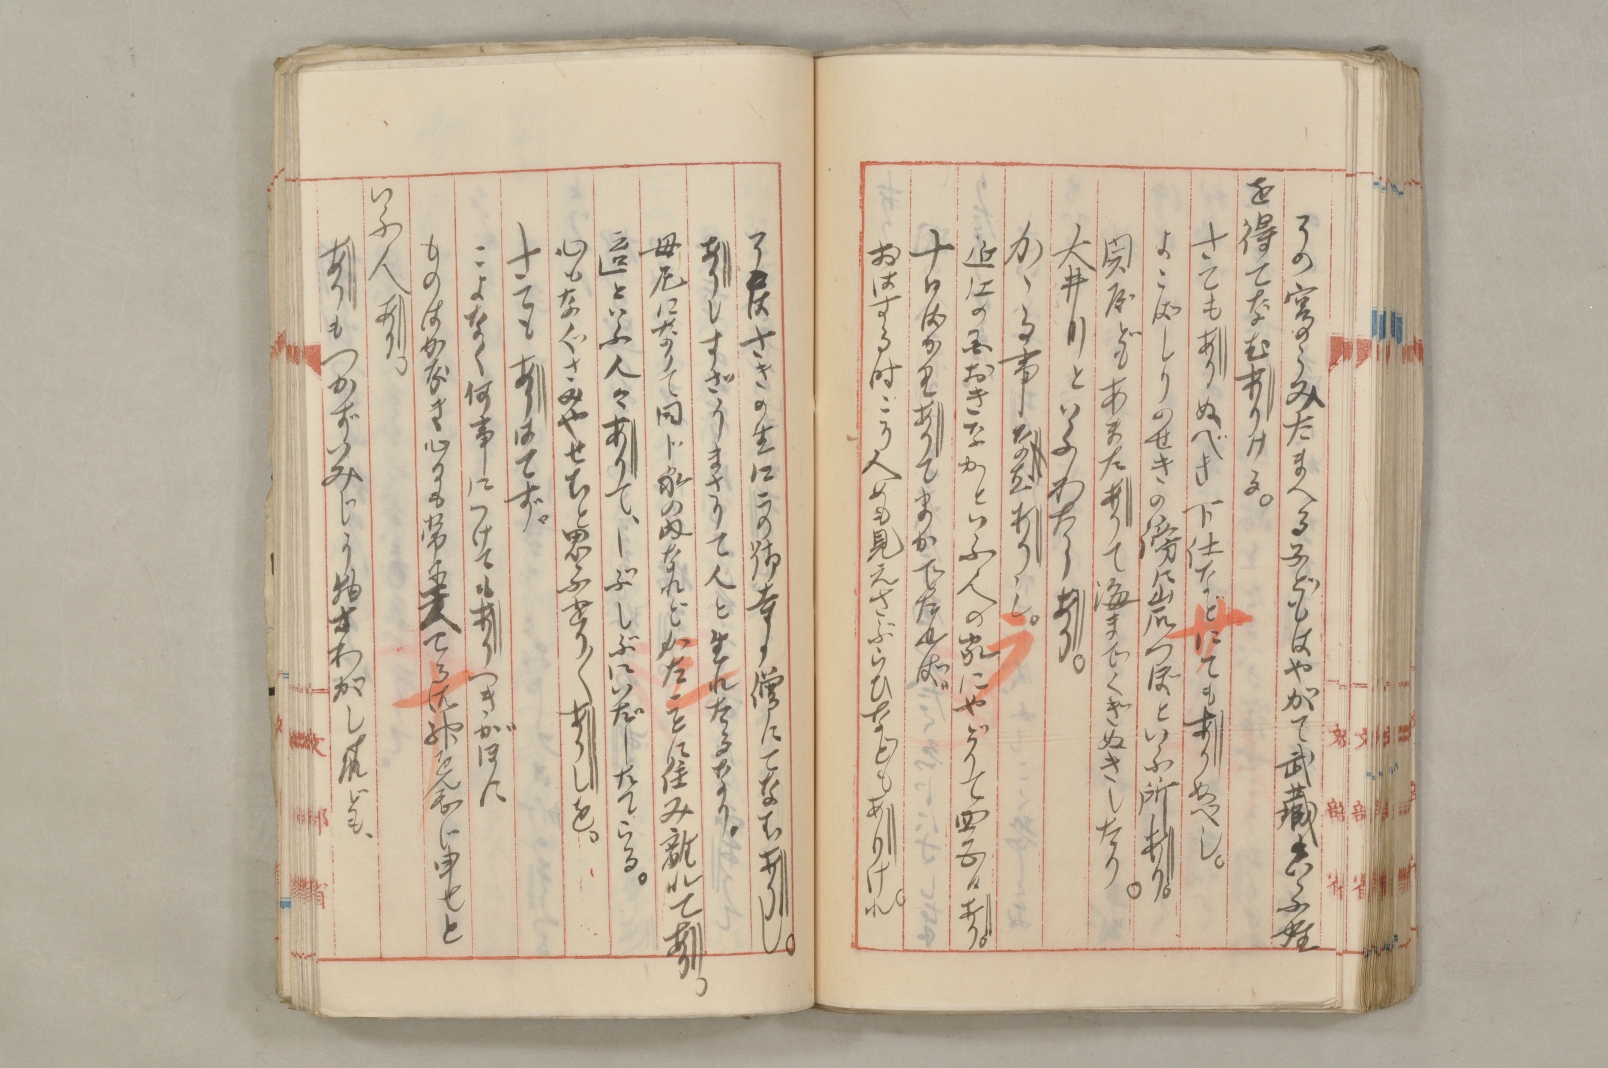 その宮のうみたまへる子どもはやがて武藏といふ姓
を得てなむありける。
さてもありぬべき下仕などにてもありぬべし。
よこばしりのせきの傍に岩つぼといふ所あり。
関屋どもあまたありて海までくぎぬきしたり。
大井川といふわたりあり。
かゝる事なむありし。
近江の国おきなかといふ人の家にやどりて四五日あり。
十日ばかりありてまかでたれば
おはする時こそ人めも見えさぶらひなどもありけれ。
そこはさきの生にこの御寺の僧にてなむありし。
ありしまさりて人と生れたるなり。
母尼になりて同じ家の内なれどかたことに住み離れてあり。
といふ人々ありて、しぶしぶにいだしたてらる。
心もなぐさみやせむと思ふをり〱ありしを。
さてもありはてず。
こよなく何事につけてもありつきがほに
ものはかなき心にも常に天てる御神を念じ申せと
いふ人あり。
ありもつかずいみじう物さわがしけれども、
サ
ラ
シ
ナ
文部省